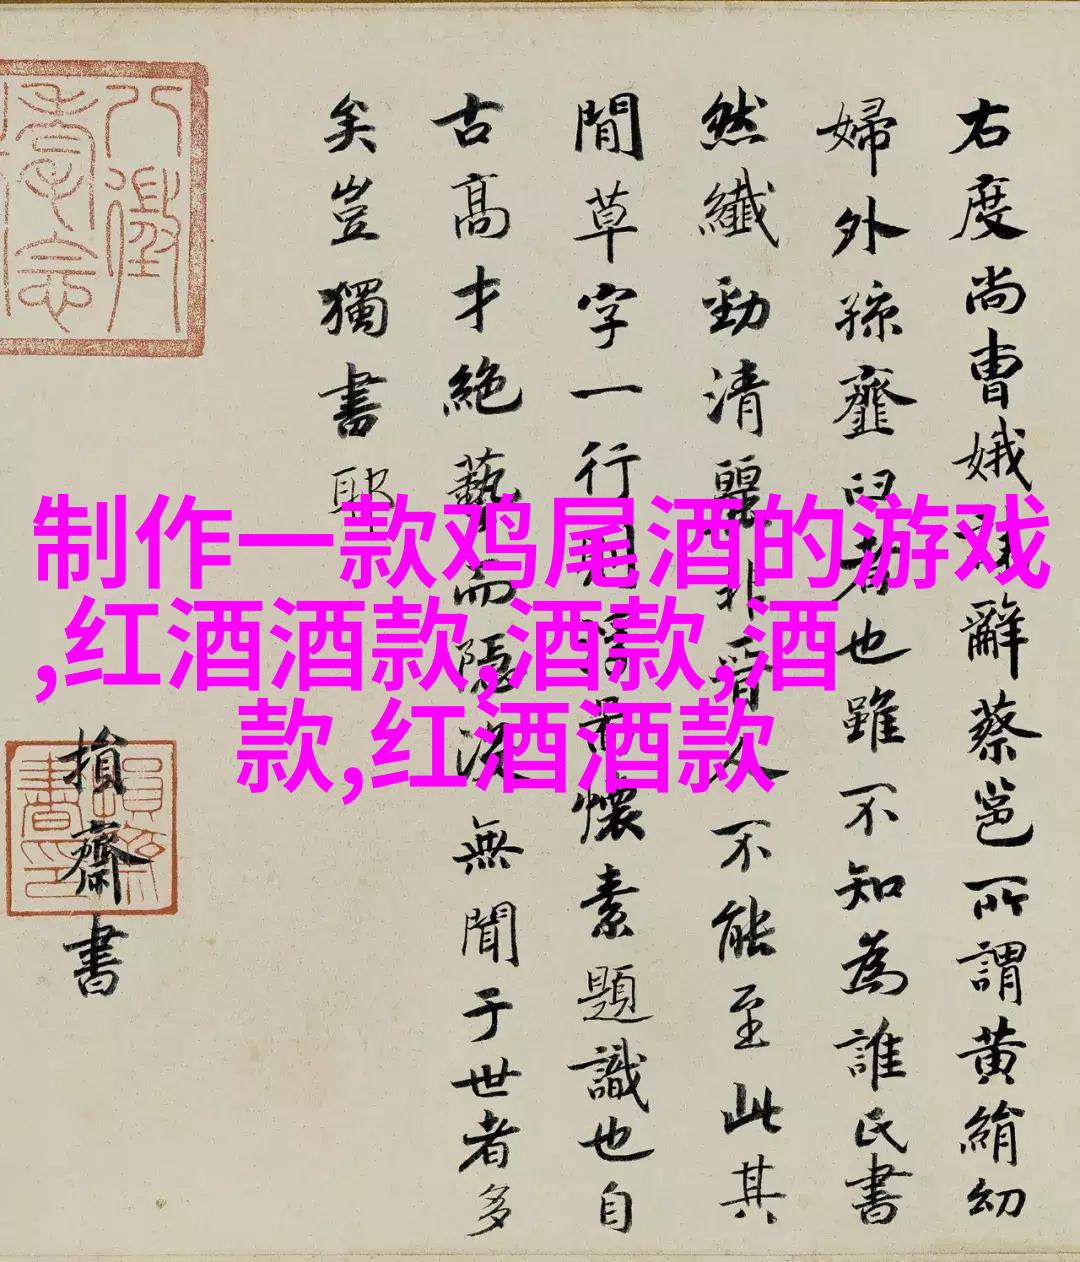 制作一款鸡尾酒的游戏
,红酒酒款,酒款,酒
款,红酒酒款
右度尚曹娥辭蔡邕所謂黄絹幼
婦外孫虀臼者也雖不知為誰氏書
然纖勁清麗非晉人不能至此其
閒草字一行懷素題識也自
古高才絕藝而隱沒無聞于世者多
矣豈獨書耶
損齋書
八徵耄念
損齋書印